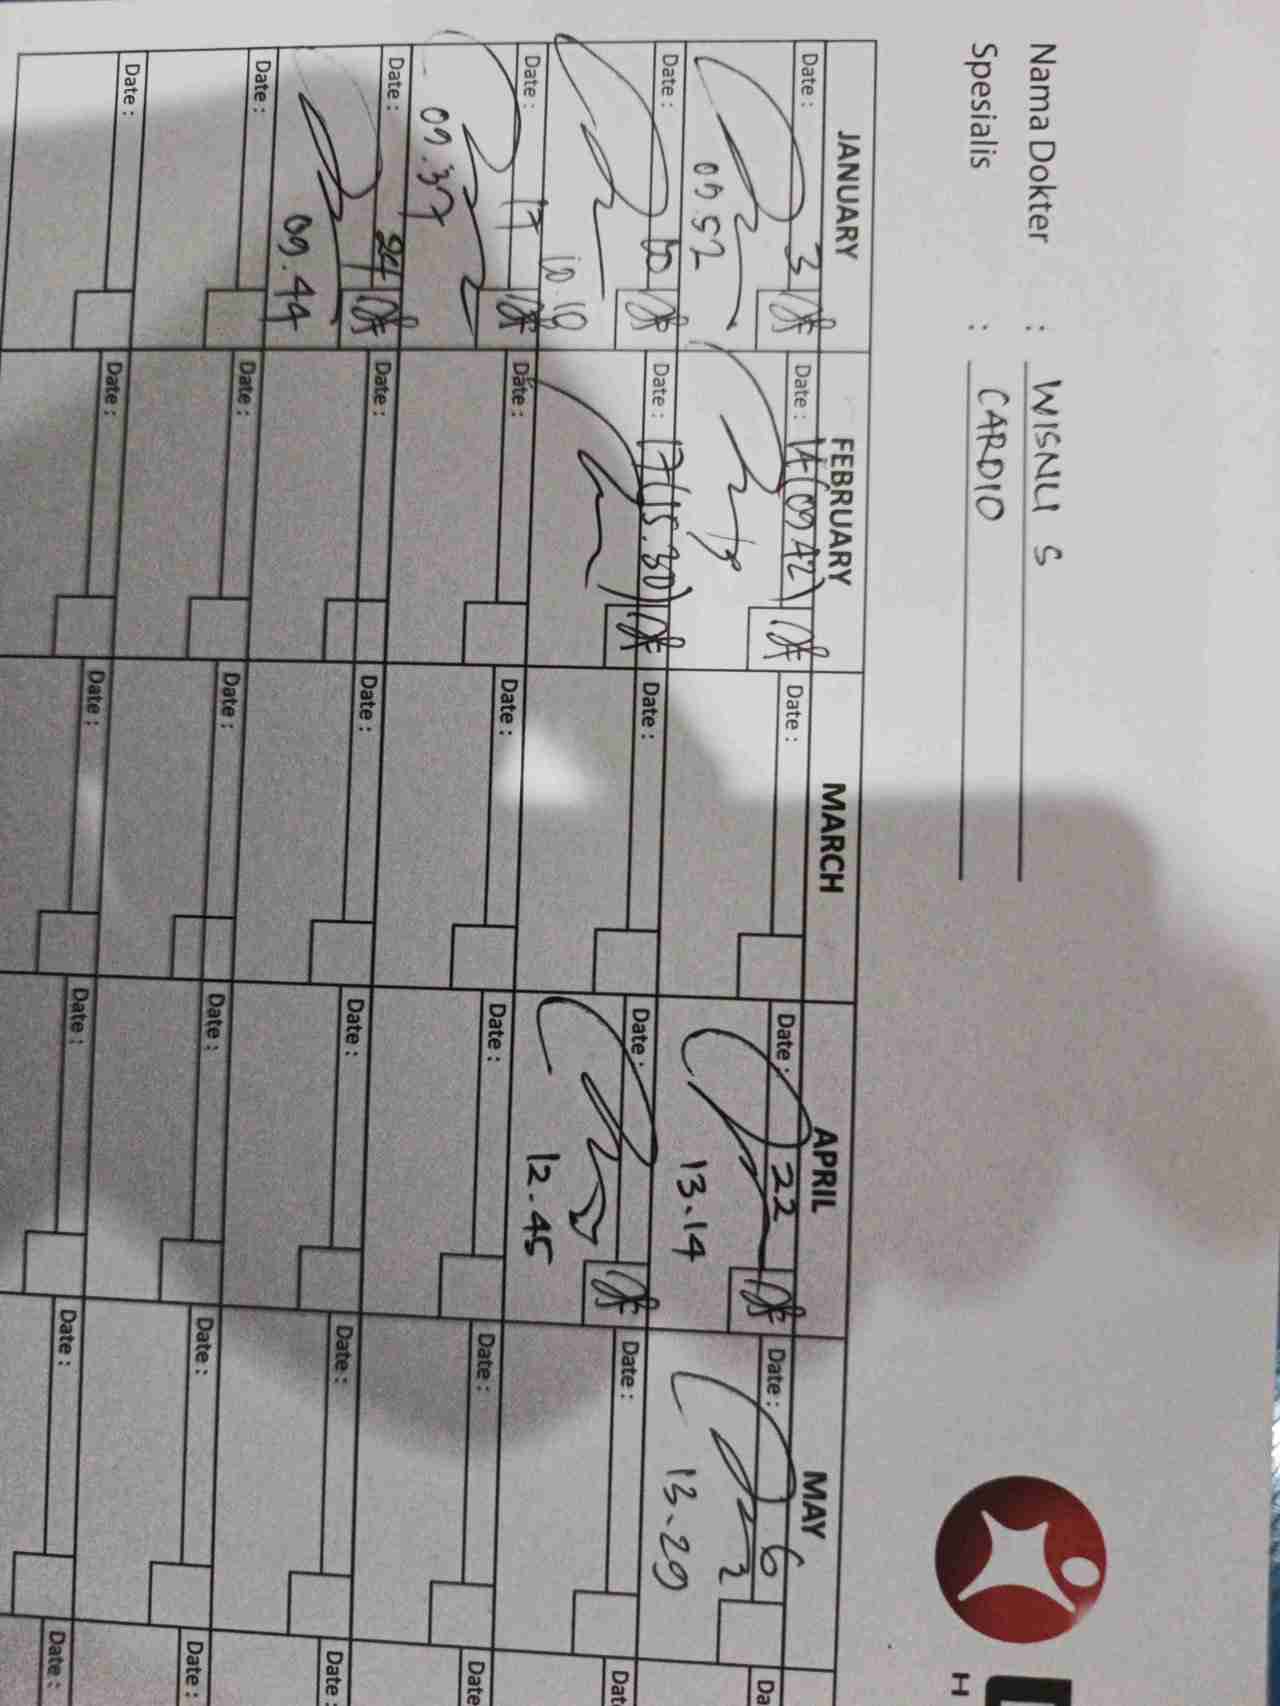 Nama Dokter : WISNU S
Spesialis : CARDIO
H
JANUARY FEBRUARY MARCH APRIL MAY
Date: 3 Date: 14 (09.42) Date: Date: 22 Date: 6 Da
09.52 13.14 13.29
Date: 10 Date: 17 (15.30) Date: Date: Date: Dat
10.10 12.45
Date: 17 Date: Date: Date: Date: Date
09.37
Date: 24 Date: Date: Date: Date: Date:
09.44
Date: Date: Date: Date: Date: Date:
Date: Date: Date: Date: Date: Date: